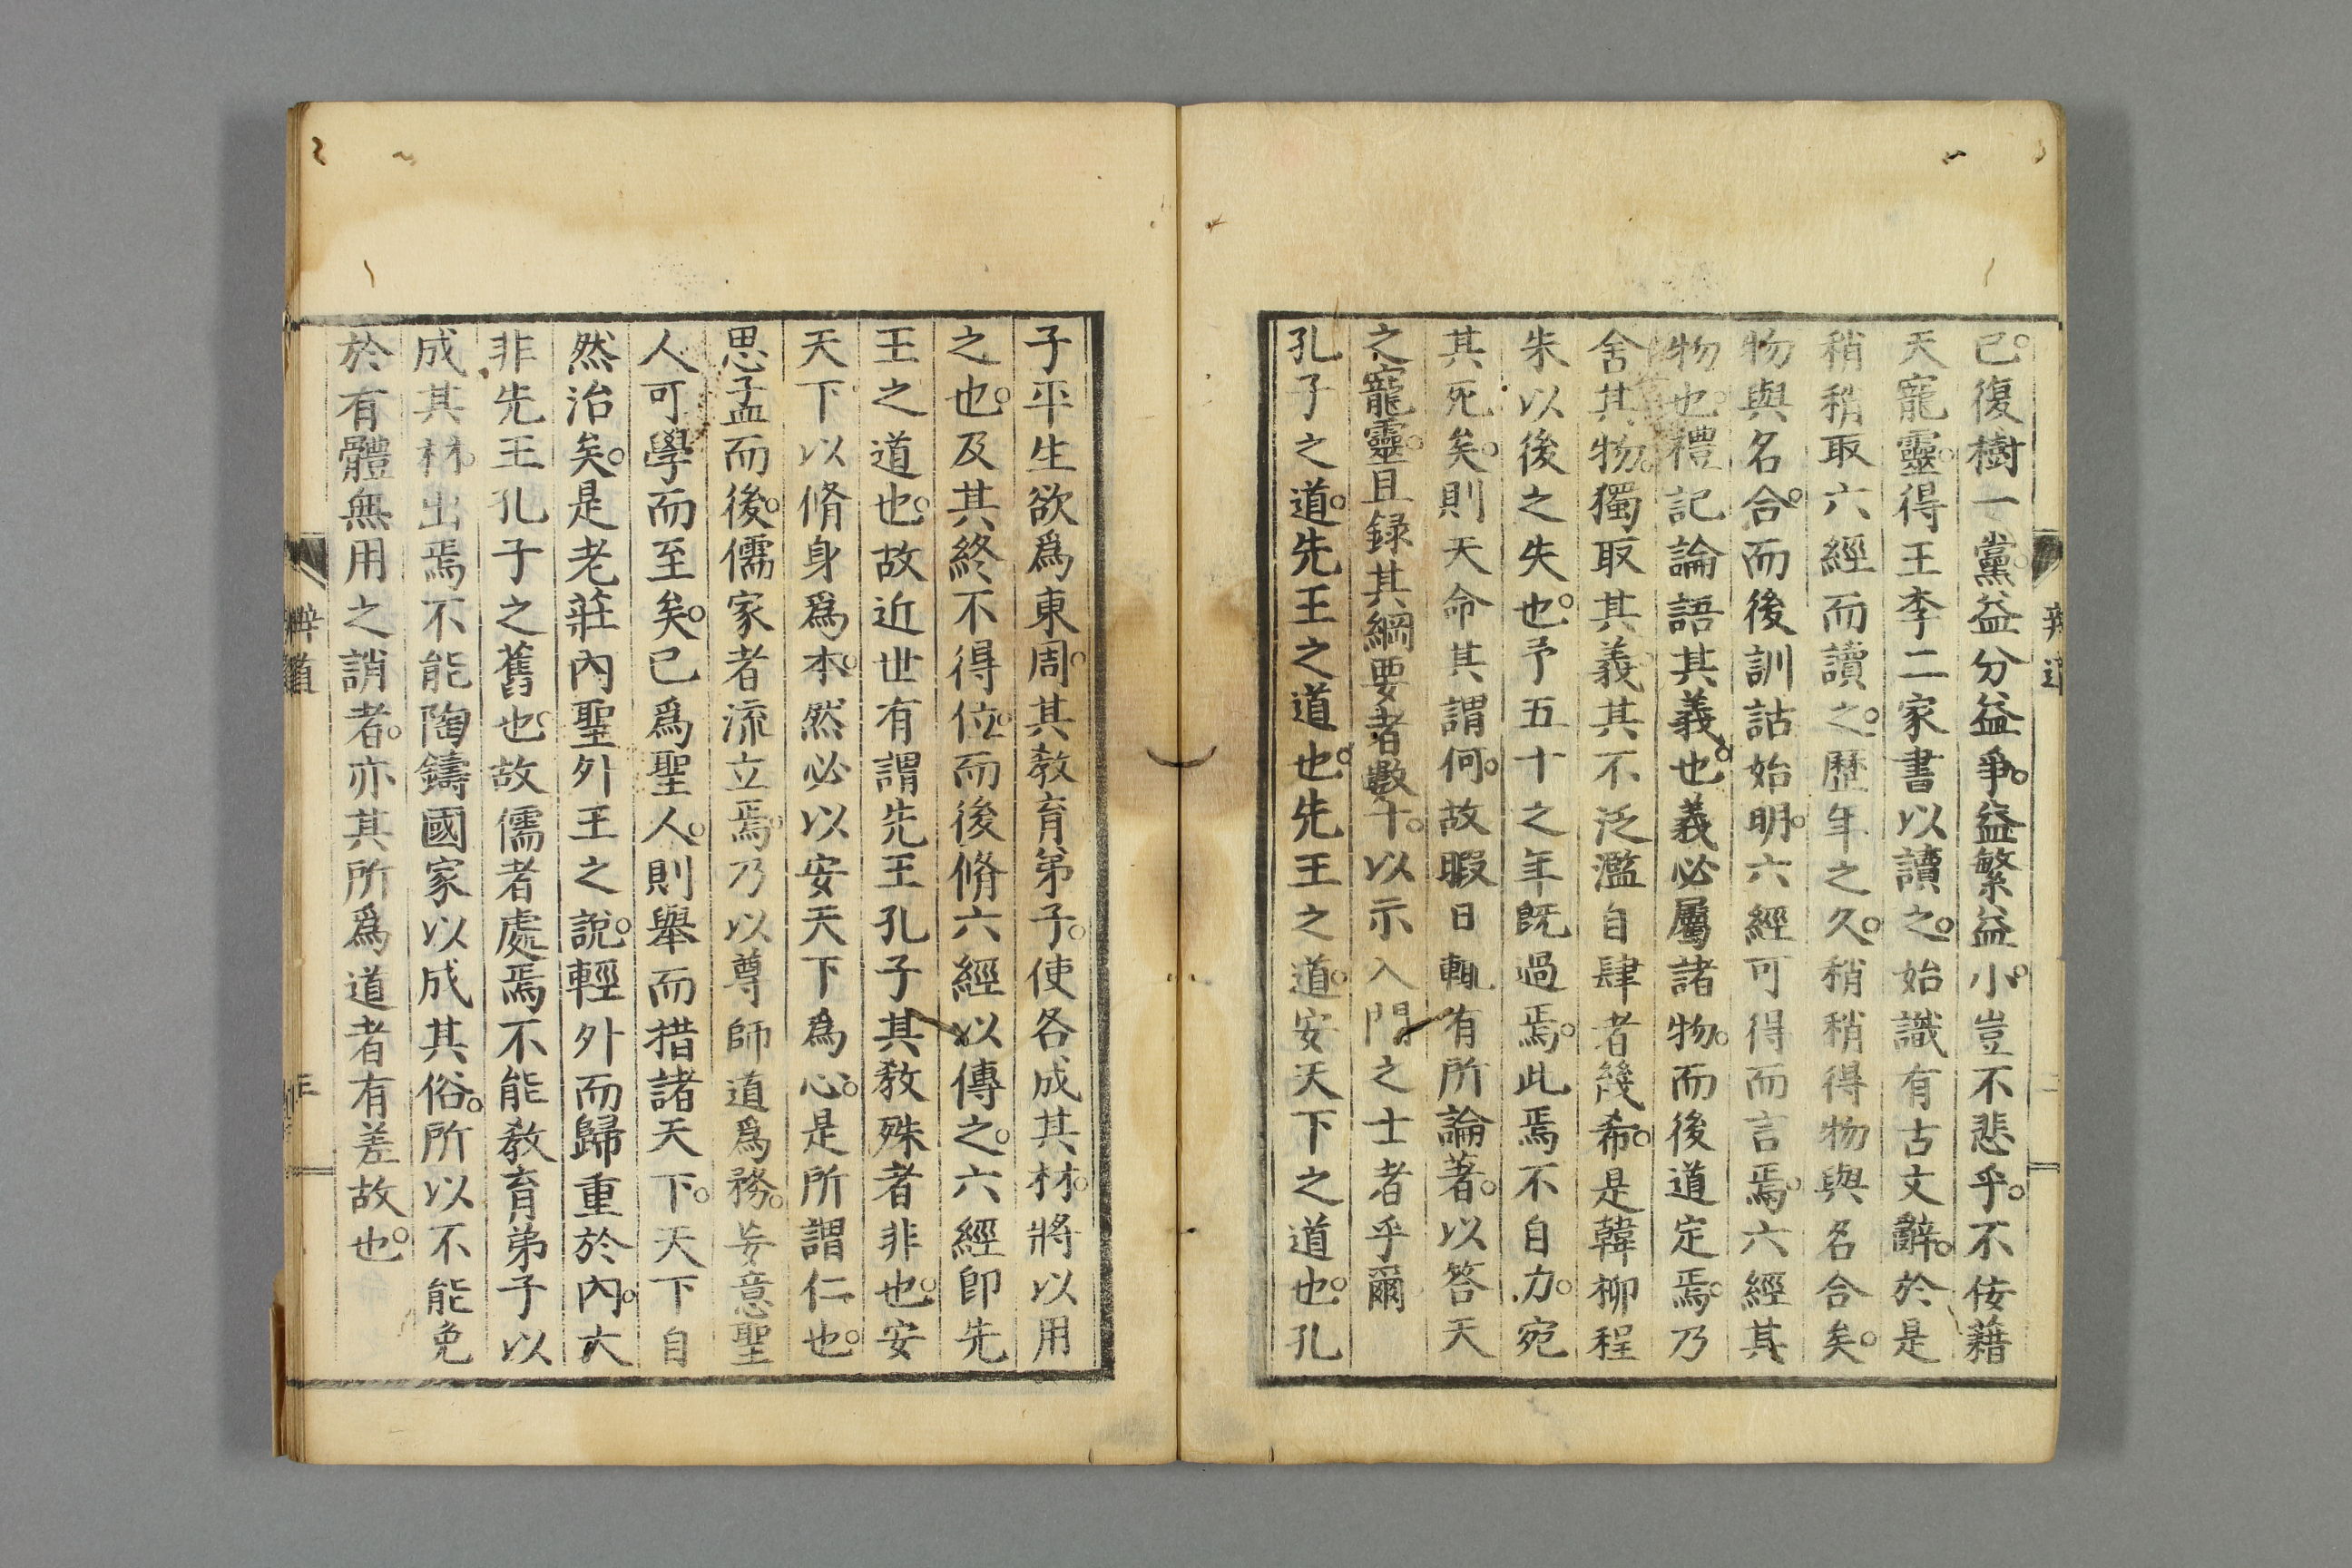 已。復樹一黨。益分益爭。益繁益小。豈不悲乎。不佞藉
天寵靈。得王李二家書以讀之。始識有古文辭。於是
稍稍取六經而讀之。歷年之久。稍稍得物與名合矣。
物與名合。而後訓詁始明。六經可得而言焉。六經其
物也。禮記論語其義也。義必屬諸物。而後道定焉。乃
舍其物。獨取其義。其不泛濫自肆者幾希。是韓柳程
朱以後之失也。予五十之年既過焉。此焉不自力。宛
其死矣。則天命其謂何。故暇日輒有所論著。以答天
之寵靈。且録其綱要者數十。以示入門之士者乎爾
孔子之道。先王之道也。先王之道。安天下之道也。孔
子平生欲爲東周。其教育弟子。使各成其材。將以用
之也。及其終不得位。而後脩六經以傳之。六經卽先
王之道也。故近世有謂先王孔子其教殊者非也。安
天下以脩身爲本。然必以安天下爲心。是所謂仁也。
思孟而後。儒家者流立焉。乃以尊師道爲務。妄意聖
人可學而至矣。已爲聖人。則舉而措諸天下。天下自
然治矣。是老莊內聖外王之說。輕外而歸重於內。大
非先王孔子之舊也。故儒者處焉不能教育弟子以
成其材。出焉不能陶鑄國家以成其俗。所以不能免
於有體無用之誚者。亦其所爲道者有差故也。
辨道
辨道